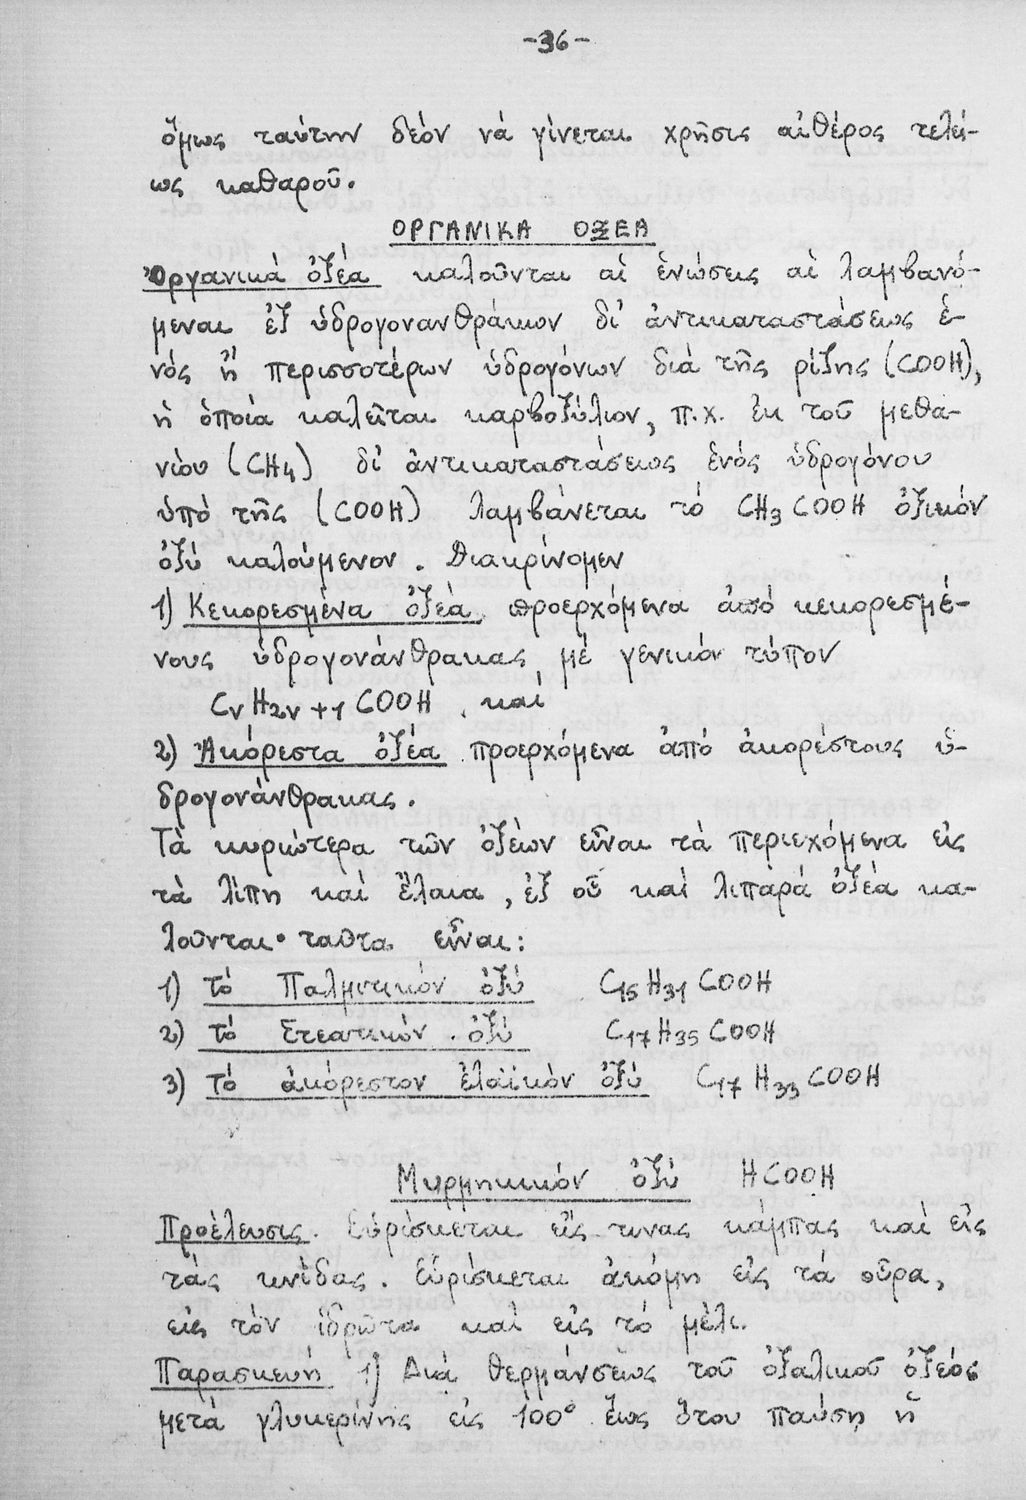 -36-
ὅμως ταύτην δέον νά γίνεται χρῆσις αἰθέρος τελεί-
ως καθαροῦ.
ΟΡΓΑΝΙΚΑ ΟΞΕΑ
Ὀργανικά ὀξέα καλοῦνται αἱ ἑνώσεις αἱ λαμβανό-
μεναι ἐξ ὑδρογονανθράκων δι' ἀντικαταστάσεως ἑ-
νός ἤ περισσοτέρων ὑδρογόνων διά τῆς ρίζης (COOH),
ἡ ὁποία καλεῖται καρβοξύλιον, π.χ. ἐκ τοῦ μεθα-
νίου (CH₄) δι' ἀντικαταστάσεως ἑνός ὑδρογόνου
ὑπό τῆς (COOH) λαμβάνεται τό CH₃COOH ὀξικόν
ὀξύ καλούμενον. Διακρίνομεν
1) Κεκορεσμένα ὀξέα προερχόμενα ἀπό κεκορεσμέ-
νους ὑδρογονάνθρακας μέ γενικόν τύπον
CνH2ν+1COOH καί
2) Ἀκόρεστα ὀξέα προερχόμενα ἀπό ἀκορέστους ὑ-
δρογονάνθρακας.
Τὰ κυριώτερα τῶν ὀξέων εἶναι τὰ περιεχόμενα εἰς
τὰ λίπη καί ἔλαια, ἐξ οὗ καί λιπαρά ὀξέα κα-
λοῦνται· ταῦτα εἶναι:
1) τό Παλμιτικόν ὀξύ C₁₅H₃₁COOH
2) τό Στεατικόν ὀξύ C₁₇H₃₅COOH
3) τό ἀκόρεστον ἐλαϊκόν ὀξύ C₁₇H₃₃COOH
Μυρμηκικόν ὀξύ HCOOH
Προέλευσις. Εὑρίσκεται εἴς τινας κάμπας καί εἰς
τάς κνίδας. Εὑρίσκεται ἀκόμη εἰς τά οὖρα,
εἰς τόν ἱδρῶτα καί εἰς τό μέλι.
Παρασκευή 1) Διά θερμάνσεως τοῦ ὀξαλικοῦ ὀξέος
μετά γλυκερίνης εἰς 100° ἕως ὅτου παύσῃ ἡ